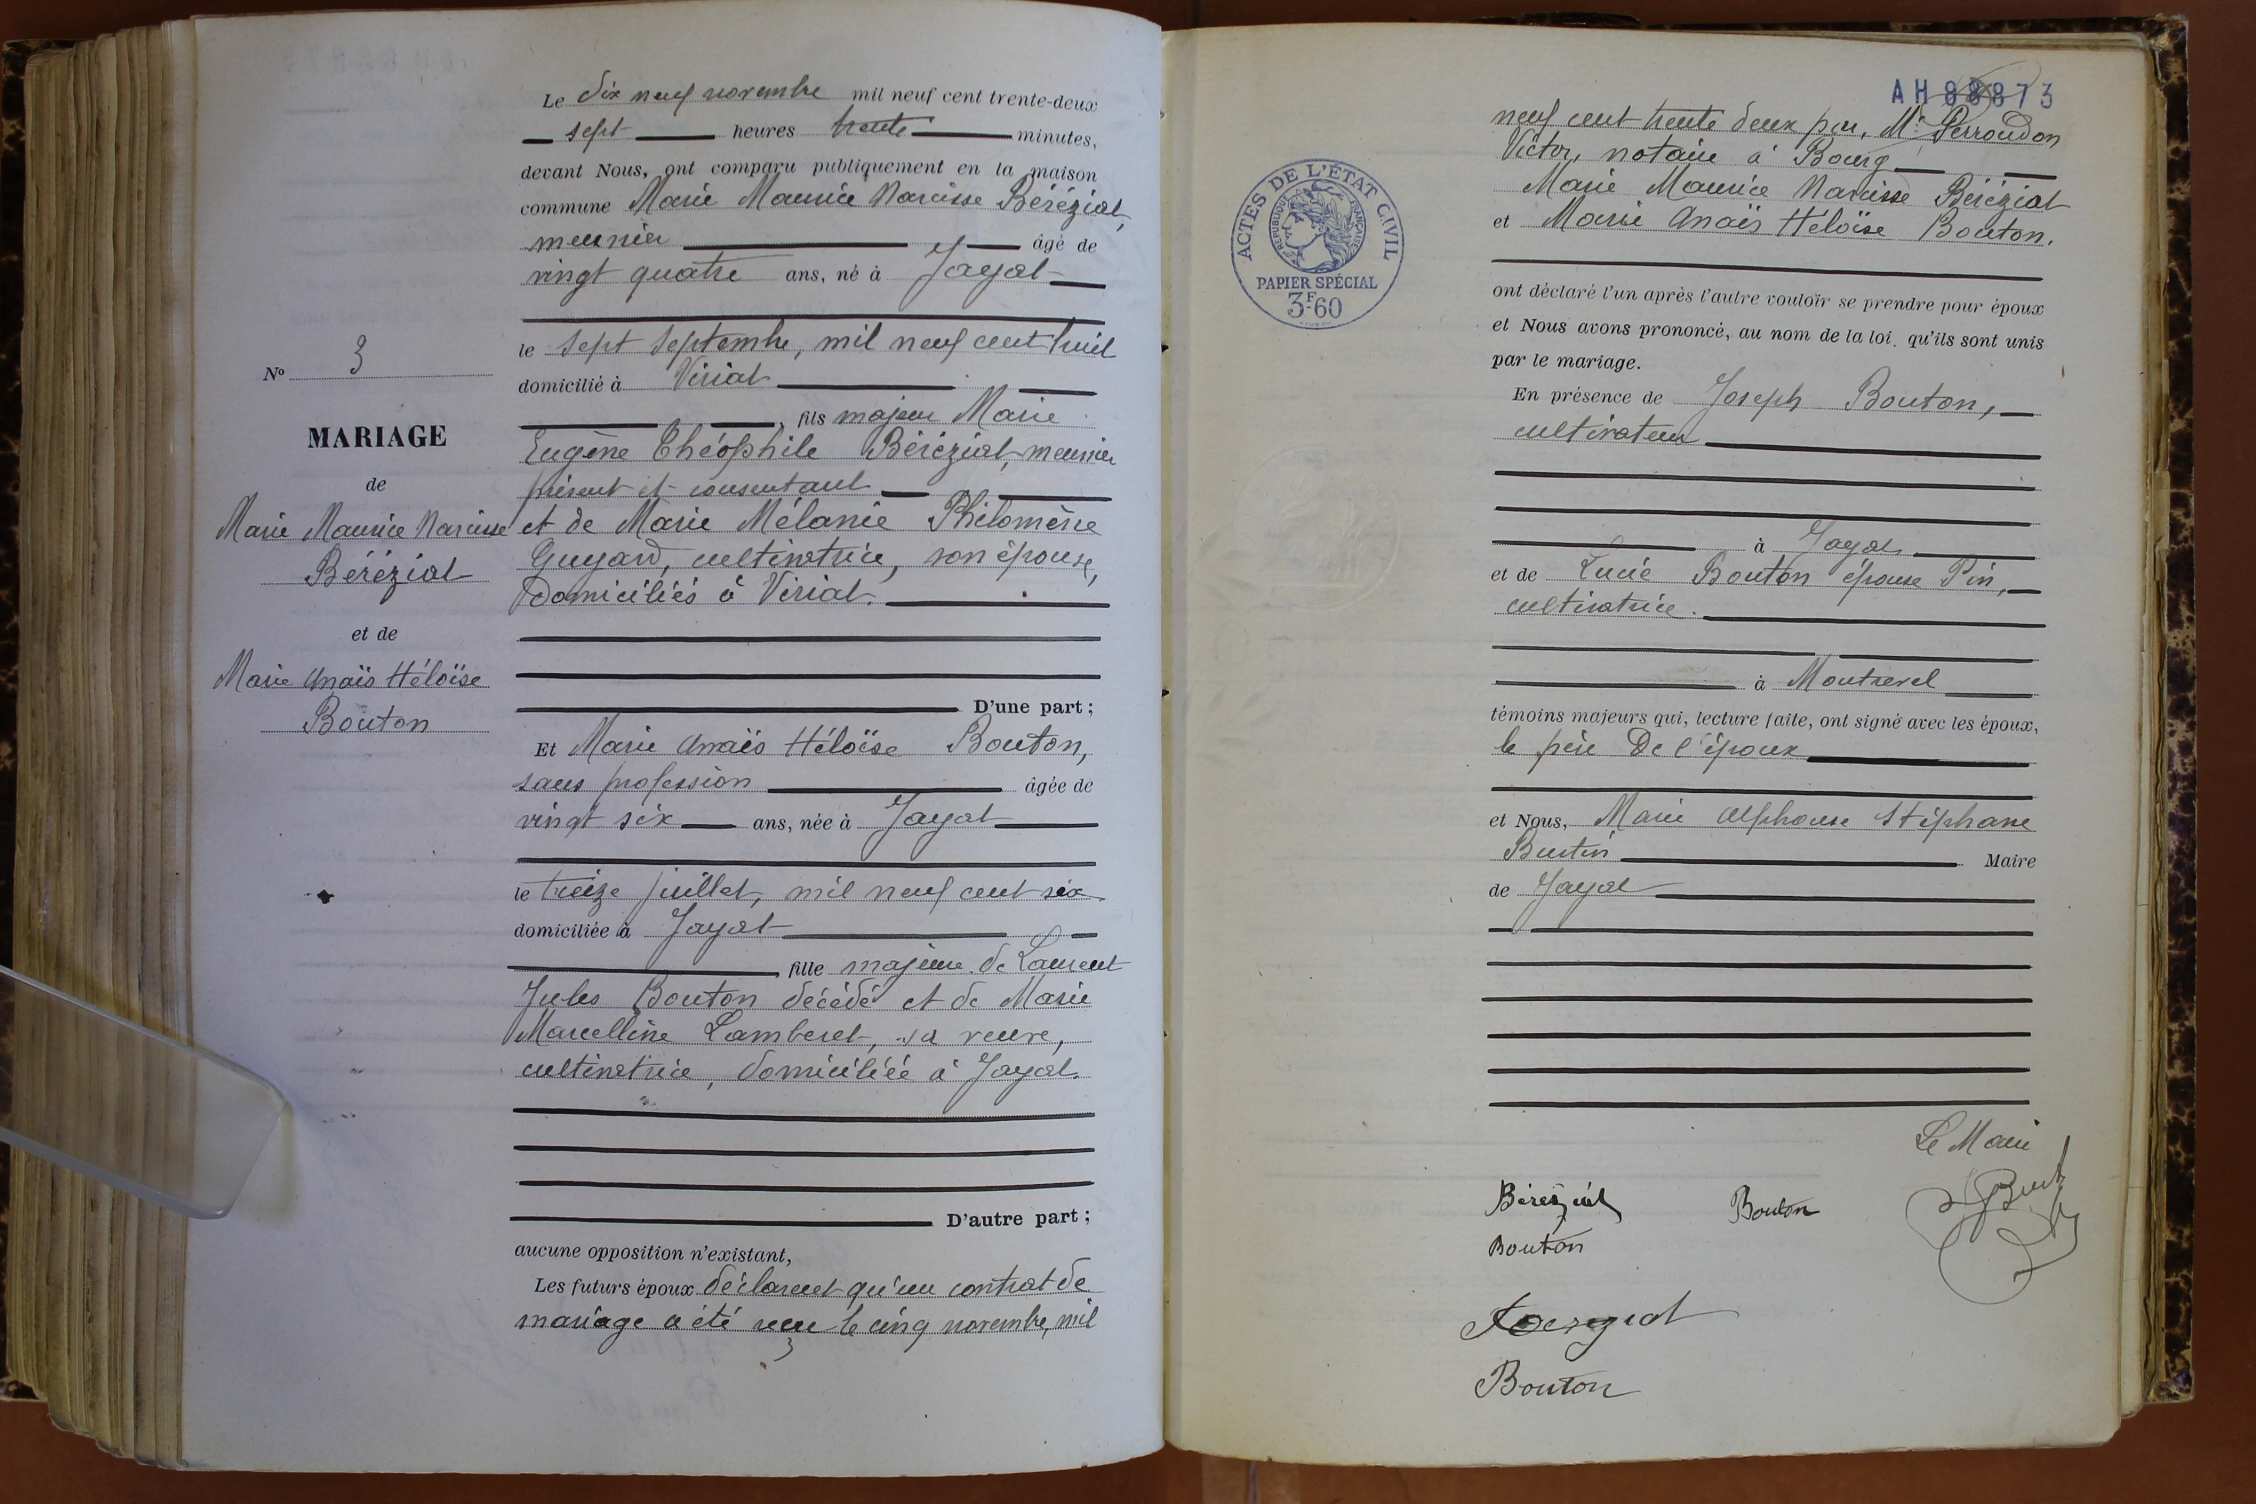 N° 3
MARIAGE
de
Marie Maurice Narcisse
Béréziat
et de
Marie Anaïs Héloïse
Bouton
Le dix neuf novembre mil neuf cent trente-deux
sept heures trente minutes,
devant Nous, ont comparu publiquement en la maison
commune Marie Maurice Narcisse Béréziat,
meunier âgé de
vingt quatre ans, né à Jayat
le sept septembre, mil neuf cent huit
domicilié à Viriat
, fils majeur Marie
Eugène Théophile Béréziat, meunier
présent et consentant
et de Marie Mélanie Philomène
Guyard, cultivatrice, son épouse,
domiciliés à Viriat.
D'une part ;
Et Marie Anaïs Héloïse Bouton,
sans profession âgée de
vingt six ans, née à Jayat
le treize juillet, mil neuf cent six
domiciliée à Jayat
, fille majeure de Laurent
Jules Bouton décédé et de Marie
Marcelline Lamberet, sa veuve,
cultivatrice, domiciliée à Jayat.
D'autre part ;
aucune opposition n'existant,
Les futurs époux déclarent qu'un contrat de
mariage a été reçu le cinq novembre, mil
AH88873
neuf cent trente deux par, Me Perroudon
Victor, notaire à Bourg
Marie Maurice Narcisse Béréziat
et Marie Anaïs Héloïse Bouton.
ACTES DE L'ÉTAT CIVIL
RÉPUBLIQUE FRANÇAISE
PAPIER SPÉCIAL
3F60
ont déclaré l'un après l'autre vouloir se prendre pour époux
et Nous avons prononcé, au nom de la loi, qu'ils sont unis
par le mariage.
En présence de Joseph Bouton,
cultivateur
à Jayat
et de Lucie Bouton épouse Pin,
cultivatrice.
à Montrevel
témoins majeurs qui, lecture faite, ont signé avec les époux,
le père de l'époux
et Nous, Marie Alphonse Stéphane
Burtin Maire
de Jayat
Le Maire
Béréziat Bouton Burtin
Bouton
Béréziat
Bouton